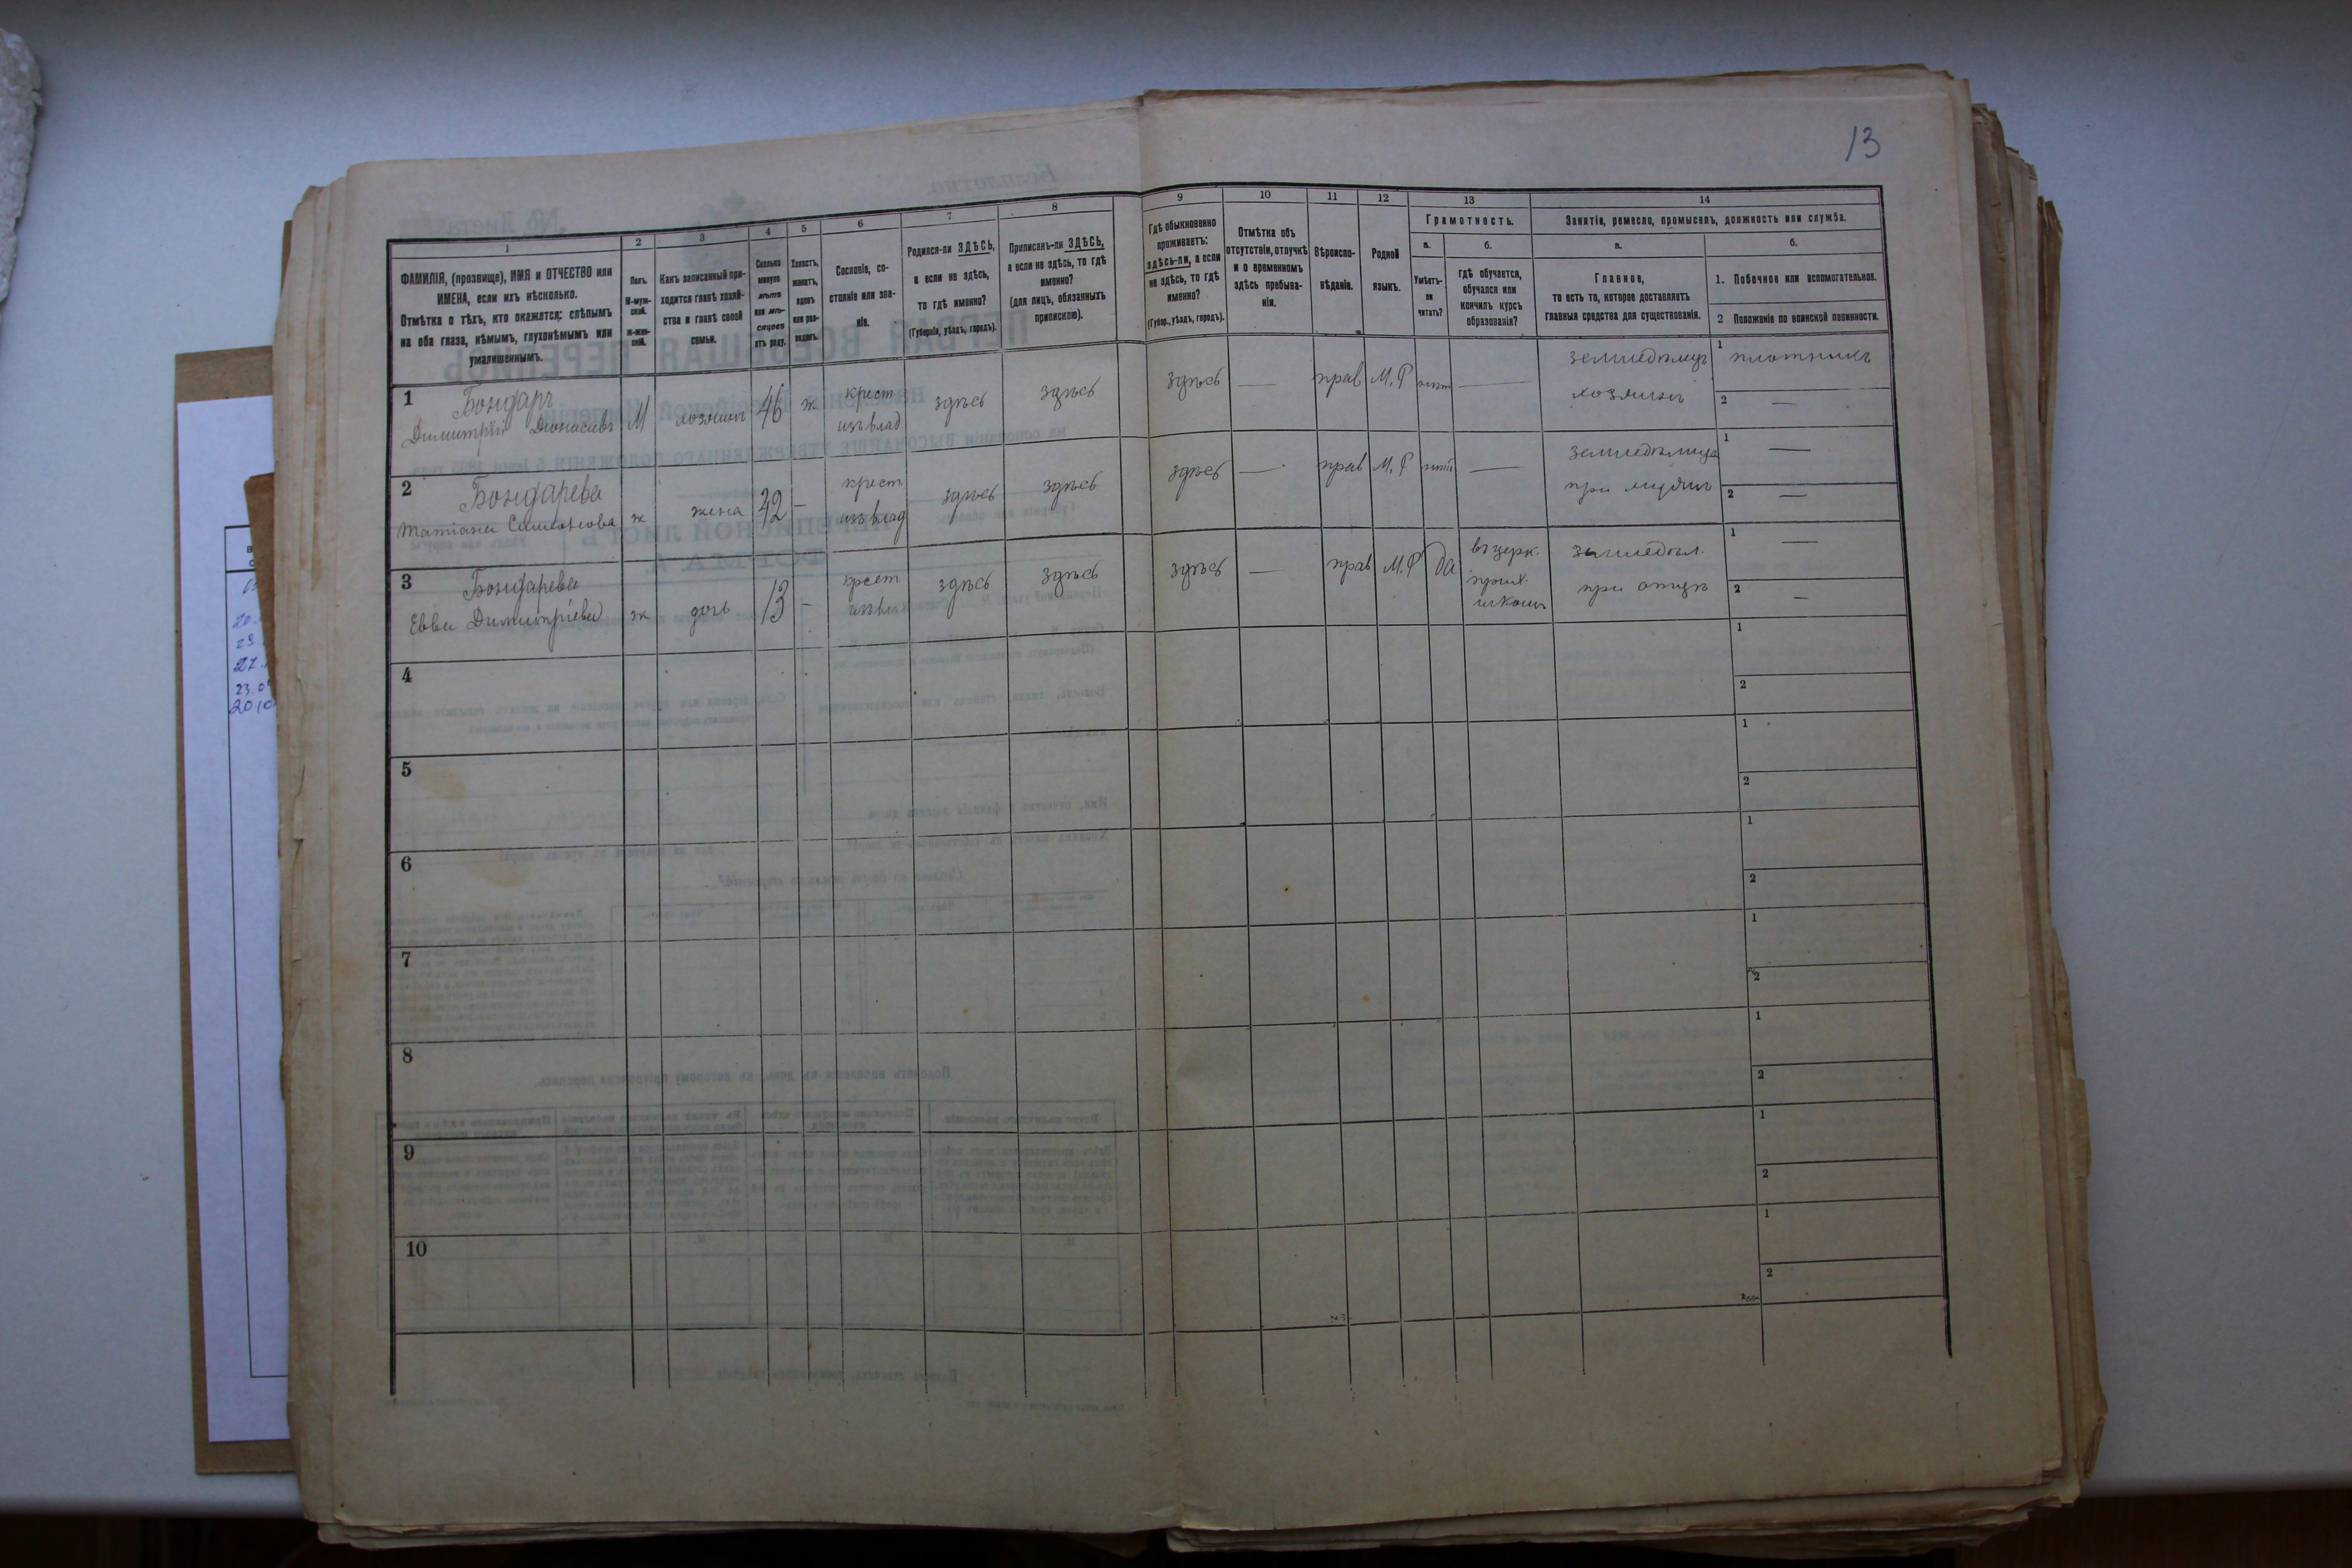 13
1
2
3
4
5
6
7
8
9
10
11
12
13
14
ФАМИЛІЯ, (прозвище), ИМЯ и ОТЧЕСТВО или
ИМЕНА, если ихъ нѣсколько.
Отмѣтка о тѣхъ, кто окажется: слѣпымъ
на оба глаза, нѣмымъ, глухонѣмымъ или
умалишеннымъ.
Полъ.
М-муж-
ской.
ж-жен-
скій.
Какъ записанный при-
ходится главѣ хозяй-
ства и главѣ своей
семьи.
Сколько
минуло
лѣтъ
или мѣ-
сяцевъ
отъ роду.
Холостъ,
женатъ,
вдовъ
или раз-
веденъ.
Сословіе, со-
стояніе или зва-
ніе.
Родился-ли ЗДѢСЬ,
а если не здѣсь,
то гдѣ именно?
(Губернія, уѣздъ, городъ).
Приписанъ-ли ЗДѢСЬ,
а если не здѣсь, то гдѣ
именно?
(для лицъ, обязанныхъ
припискою).
Гдѣ обыкновенно
проживаетъ:
здѣсь-ли, а если
не здѣсь, то гдѣ
именно?
(Губер., уѣздъ, городъ).
Отмѣтка объ
отсутствіи, отлучкѣ
и о временномъ
здѣсь пребыва-
ніи.
Вѣроиспо-
вѣданіе.
Родной
языкъ.
Грамотность.
а.
Умѣетъ-
ли
читать?
б.
гдѣ обучается,
обучался или
кончилъ курсъ
образованія?
Занятіе, ремесло, промыселъ, должность или служба.
а.
Главное,
то есть то, которое доставляетъ
главныя средства для существованія.
б.
1. Побочное или вспомогательное.
2 Положеніе по воинской повинности.
1 Бондарь
Димитрій
М хозяинъ 46 ж
крест
изъ влад
здѣсь здѣсь здѣсь — прав М.Р нѣтъ —
земледѣлецъ
хозяинъ
1 плотникъ
2 —
2 Бондарева
Татіана Симонова
ж жена 42 —
крест
изъ влад
здѣсь здѣсь здѣсь — прав М.Р нѣтъ —
земледѣлица
при мужѣ
1 —
2 —
3 Бондарева
Евва Димитріева
ж дочь 13 —
крест
изъ влад
здѣсь здѣсь здѣсь — прав М.Р да
въ церк.
прих.
школѣ
земледѣл.
при отцѣ
1 —
2 —
4
1
2
5
1
2
6
1
2
7
1
2
8
1
2
9
1
2
10
1
2